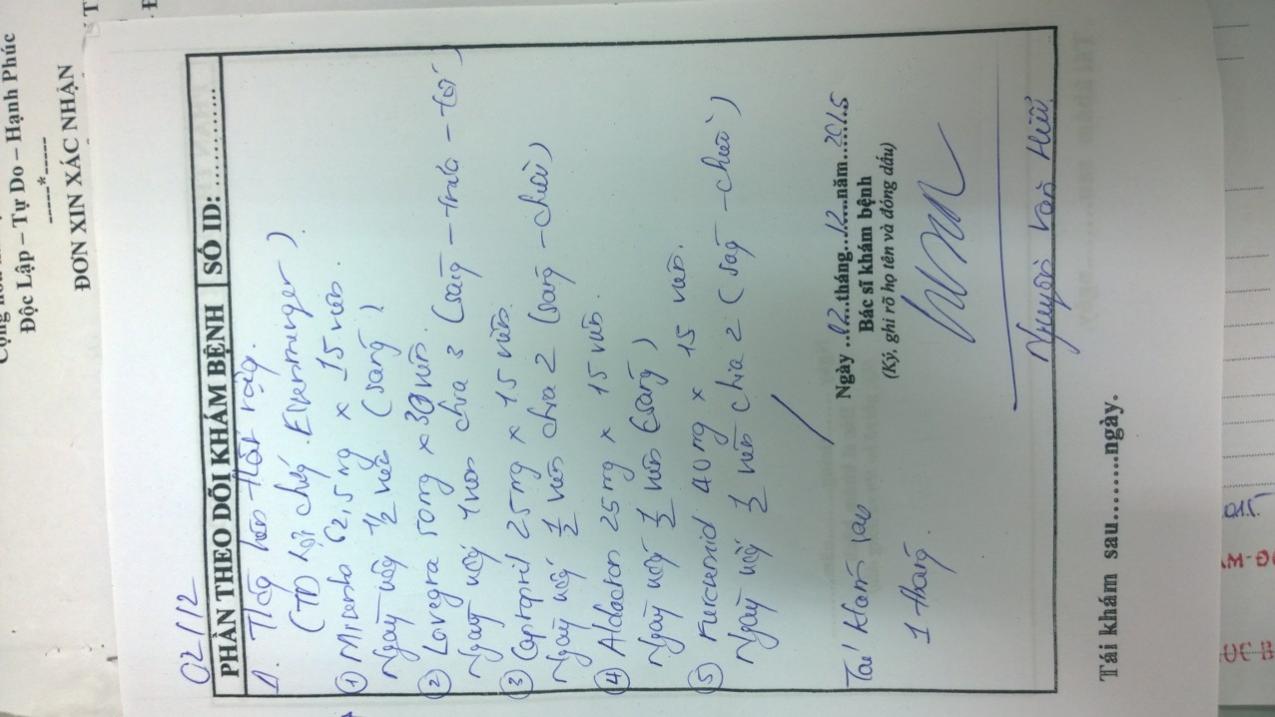 Độc Lập – Tự Do – Hạnh Phúc
-----*-----
ĐƠN XIN XÁC NHẬN
02/12
PHẦN THEO DÕI KHÁM BỆNH | SỐ ID: ............
Δ. Thông liên thất rộng.
(TD hội chứng Eisenmenger)
① 62,5mg x 15 viên.
Ngày uống 1/2 viên (sáng)
② Lovegra 50mg x 30 viên.
Ngày uống 1 viên chia 3 (sáng – trưa – tối)
③ Captopril 25mg x 15 viên.
Ngày uống 1/2 viên chia 2 (sáng – chiều)
④ Aldacton 25mg x 15 viên.
Ngày uống 1/2 viên (sáng)
⑤ Furosemid 40mg x 15 viên.
Ngày uống 1/2 viên chia 2 (sáng – chiều)
Tái khám sau
1 tháng.
Ngày ..02...tháng...12...năm....2015
Bác sĩ khám bệnh
(Ký, ghi rõ họ tên và đóng dấu)
Nguyễn Văn
Tái khám sau.........ngày.
015